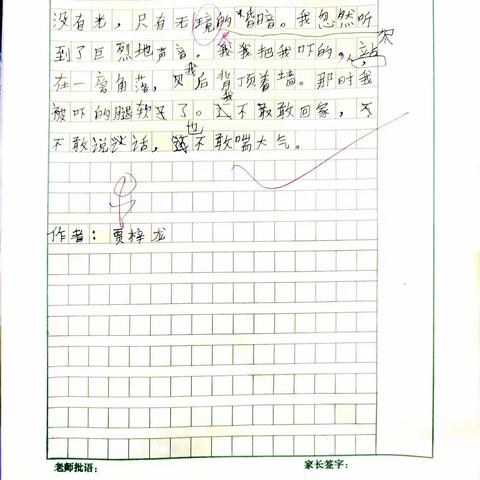 没有光，只有无境的昏暗。我忽然听
到了巨烈地声音。我把我吓的，站
在一旁角落，我后背顶着墙。那时我
被吓的腿软了。我不敢回家，
不敢说话，也不敢喘大气。
作者：贾梓龙
老师批语：
家长签字：